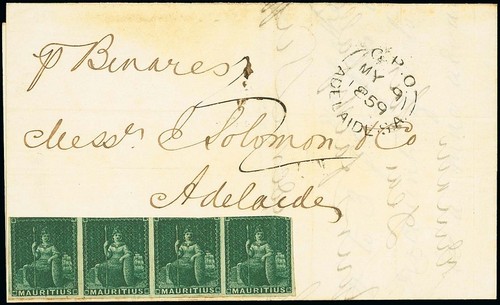 p Benares
G.P.O
MY 9
1859
ADELAIDE S.A
Messrs J Solomon & Co
Adelaide
MAURITIUS MAURITIUS MAURITIUS MAURITIUS